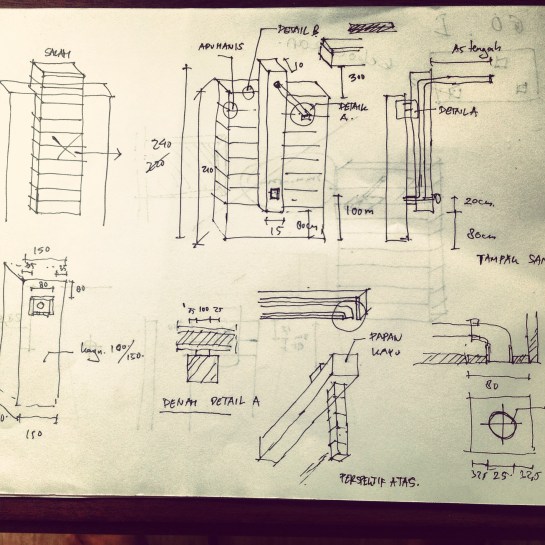 SALAH
ADUMANIS
DETAIL B
10
300
DETAIL
A.
As tengah
DETAIL A
240
220
210
100m
15
80cm
20cm
80cm
TAMPAK SAM
150
25
25
80
80
kayu 100/
150.
150
25 100 25
DENAH DETAIL A
PAPAN
KAYU
PERSPEKTIF ATAS.
80
32,5 25 32,5